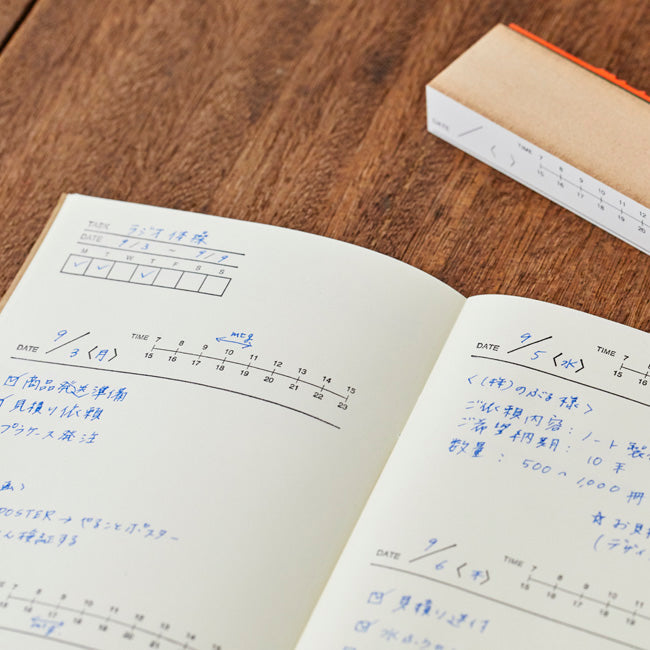 DATE / 〈 〉 TIME 7 8 9 10 11 12
15 16 17 18 19 20
TASK ラジオ体操
DATE 9/3 9/9
M T W T F S S
DATE 9/3〈月〉 TIME 7 8 9 10 11 12 13 14 15
mtg
15 16 17 18 19 20 21 22 23
商品発送準備
見積り依頼
プラケース発注
POSTER→やることポスター
検証する
7 8 9 10 11 12 13 14
15 16 17 18 19 20 21
mtg
DATE 9/5〈水〉 TIME 7
15 16
〈(株)のぶる様〉
ご依頼内容:ノート製
ご希望納期:10末
数量:500〜1,000冊
☆お見積
(デザイ
DATE 9/6〈木〉 TIME 7 8 9 10 11
15 16 17 18
見積り送付